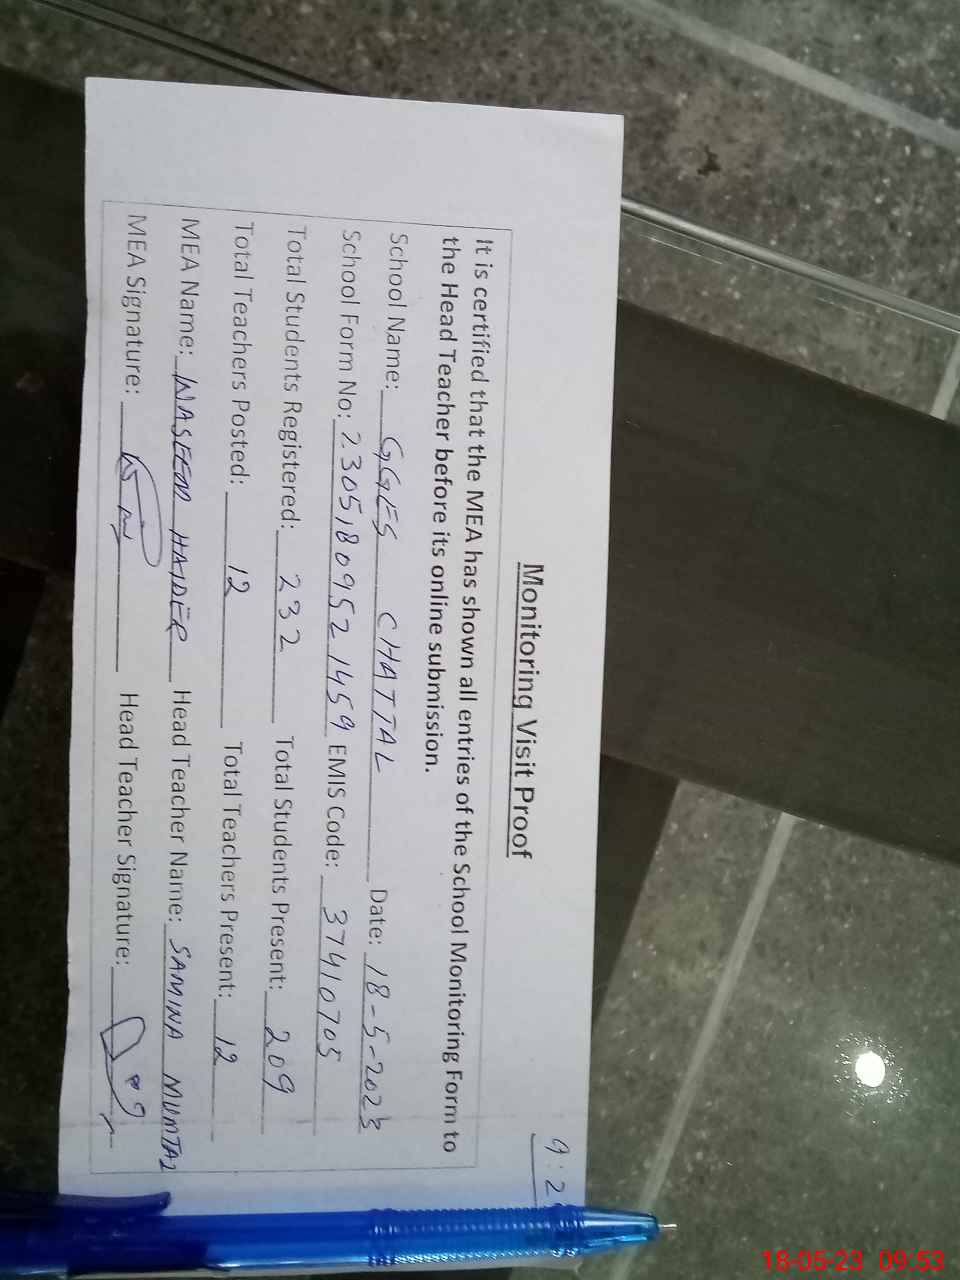 9:2
Monitoring Visit Proof
It is certified that the MEA has shown all entries of the School Monitoring Form to
the Head Teacher before its online submission.
School Name: GGES CHATTAL Date: 18-5-2023
School Form No: 23051809521459 EMIS Code: 37410705
Total Students Registered: 232 Total Students Present: 209
Total Teachers Posted: 12 Total Teachers Present: 12
MEA Name: WASEEM HAIDER Head Teacher Name: SAMINA MUMTAZ
MEA Signature: Head Teacher Signature:
18-05-23 09:53